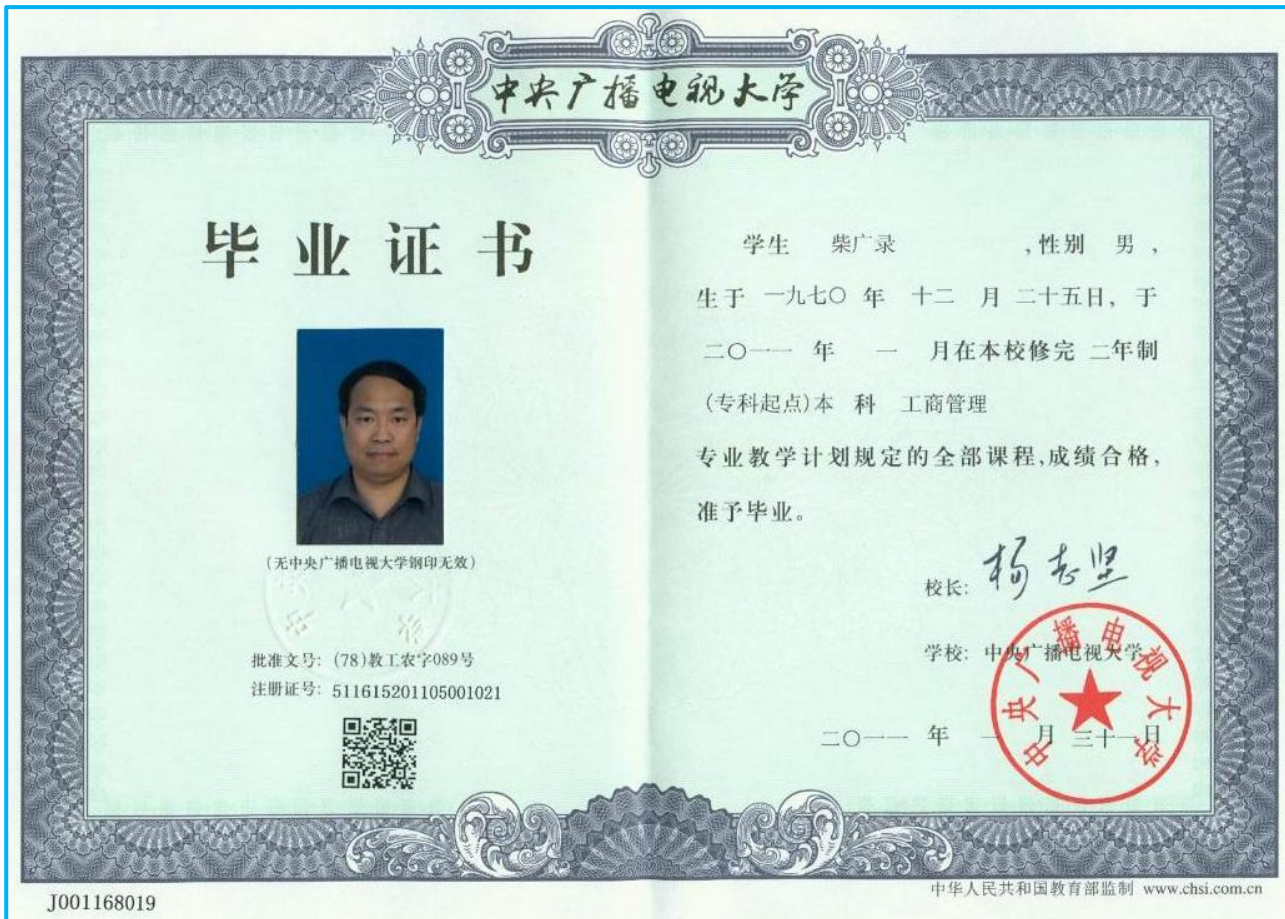 中央广播电视大学
毕业证书
(无中央广播电视大学钢印无效)
批准文号: (78)教工农字089号
注册证号: 511615201105001021
学生 柴广录 ,性别 男 ,
生于 一九七〇 年 十二 月 二十五日, 于
二〇一一 年 一 月在本校修完 二年制
(专科起点)本 科 工商管理
专业教学计划规定的全部课程,成绩合格,
准予毕业。
校长: 杨志坚
学校: 中央广播电视大学
二〇一一 年 一 月 三十一日
中央广播电视大学
J001168019
中华人民共和国教育部监制 www.chsi.com.cn